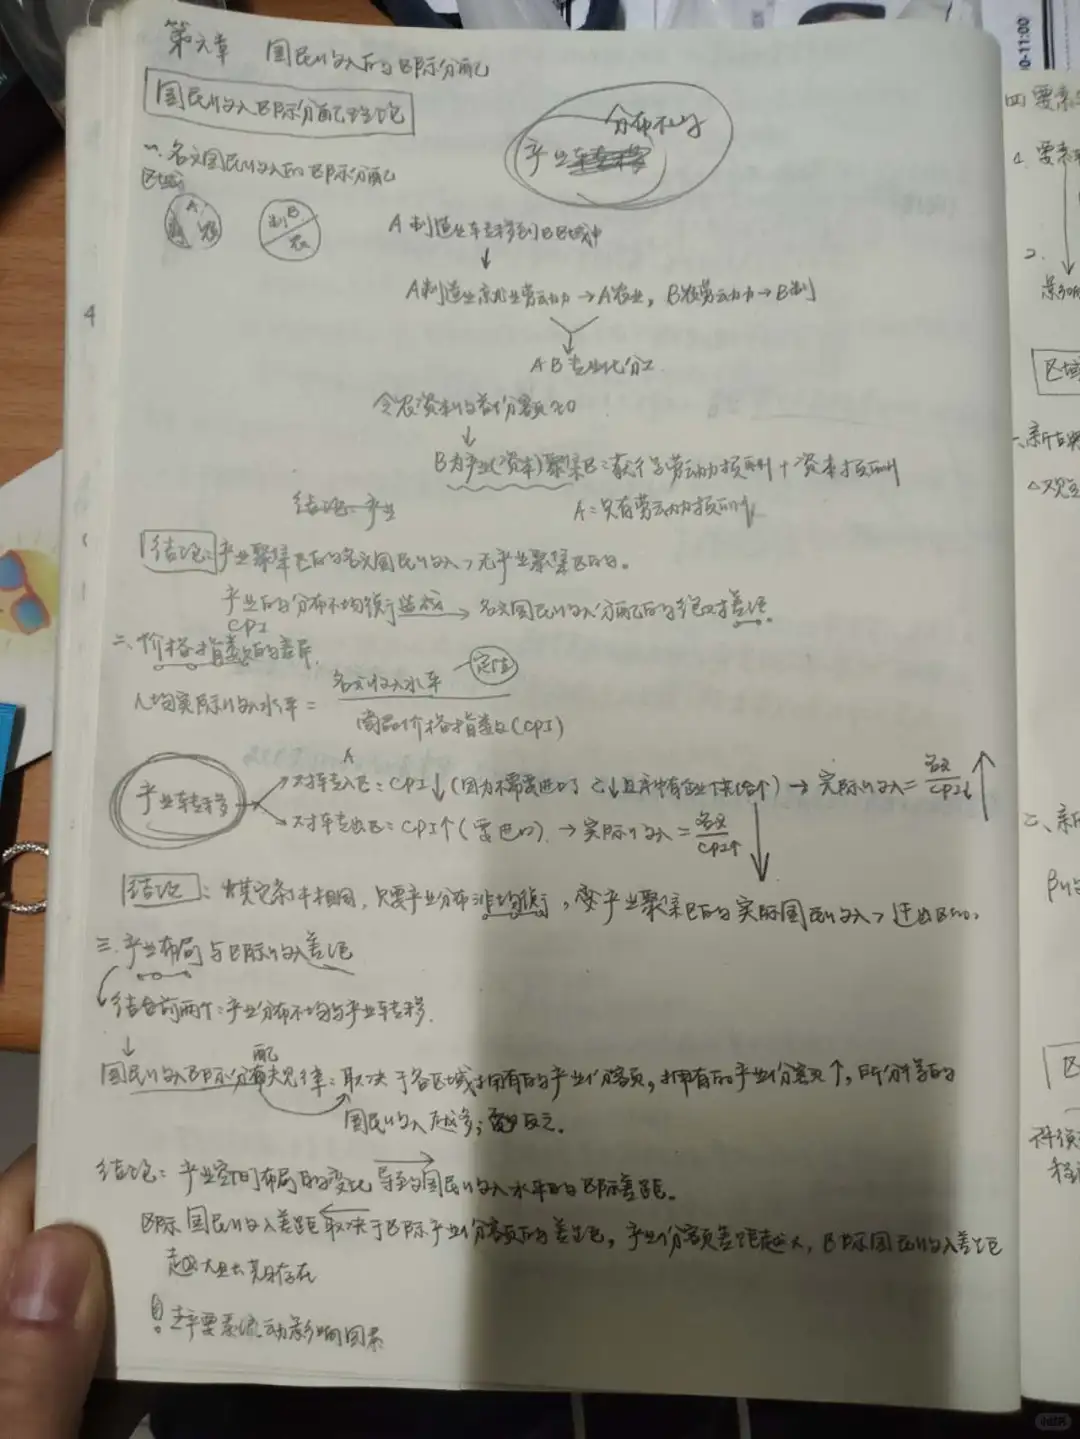 第六章 国民收入的区际分配
国民收入区际分配理论
分布不均
产业转移
一、名义国民收入的区际分配
区域
A 农
制 B 农
A制造业转移到B区域中
↓
A制造业就业劳动力→A农业，B农劳动力→B制
↓
AB专业化分工
令农资本收益份额≈0
↓
B为产业(资本)聚集区：获得劳动力报酬+资本报酬
A：只有劳动力报酬
结论 产业
结论：产业聚集区的名义国民收入>无产业聚集区的。
产业的分布不均衡造成→名义国民收入分配的绝对差距。
CPI
二、价格指数的差异
人均实际收入水平 = 名义收入水平 / 商品价格指数(CPI) 定值
产业转移
A
对转入区：CPI↓(因为不需要进口 C↓且产中有企业供给↑)→实际收入=名义/CPI↓ ↑
对转出区：CPI↑(需进口)→实际收入=名义/CPI↑ ↓
结论：其它条件相同，只要产业分布非均衡，产业聚集区的实际国民收入>迁出区的。
三、产业布局与区际收入差距
结合前两个：产业分布不均与产业转移.
↓
国民收入区际分配规律：取决于各区域拥有的产业份额，拥有的产业份额↑，所分得的
国民收入越多；反之。
结论：产业空间布局的变化导致国民收入水平的区际差距。
区际国民收入差距取决于区际产业份额的差距，产业份额差距越大，区际国民收入差距
越大且长期存在
！主要要素流动影响因素
四 要素
1. 要素
2.
影响
区域
一、新古典
二、新
区